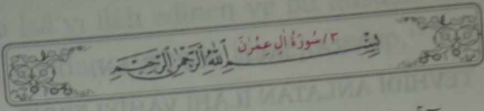 ٣/سُورَةُ اٰلِ عِمْرٰنَ
بِسْمِ اللّٰهِ الرَّحْمٰنِ الرَّحٖيمِ